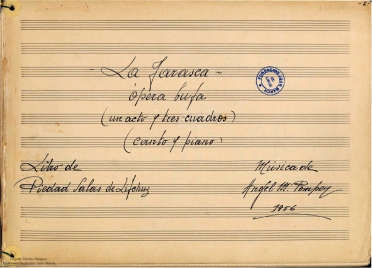 - La Tarasca -
ópera bufa
(un acto y tres cuadros)
(canto y piano)
Libro de
Piedad Salas de Lifchuz
Música de
Angel M. Pompey
1956